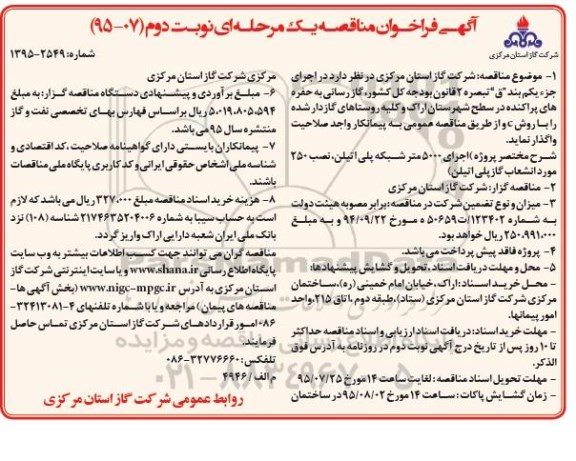 آگهی فراخوان مناقصه یک مرحله‌ای نوبت دوم (۰۷-۹۵)
شرکت گاز استان مرکزی
شماره: ۲۵۴۹-۱۳۹۵
۱- موضوع مناقصه: شرکت گاز استان مرکزی در نظر دارد در اجرای
جزء یکم بند "ق" تبصره ۲ قانون بودجه کل کشور، گاز رسانی به حفره
های پراکنده در سطح شهرستان اراک و کلیه روستاهای گازدار شده
را با روش c و از طریق مناقصه عمومی به پیمانکار واجد صلاحیت
واگذار نماید.
شرح مختصر پروژه (اجرای ۵۰۰۰ متر شبکه پلی اتیلن، نصب ۲۵۰
مورد انشعاب گاز پلی اتیلن)
۲- مناقصه گزار: شرکت گاز استان مرکزی
۳- میزان و نوع تضمین شرکت در مناقصه: برابر مصوبه هیئت دولت
به شماره ۱۲۳۴۰۲/ت۵۰۶۵۹ ه مورخ ۹۴/۰۹/۲۲ و به مبلغ
۲۵۰.۹۹۱.۰۰۰ ریال خواهد بود.
۴- پروژه فاقد پیش پرداخت می‌باشد.
۵- محل و مهلت دریافت اسناد، تحویل و گشایش پیشنهادها:
- محل خرید اسناد: اراک، خیابان امام خمینی (ره)، ساختمان
مرکزی شرکت گاز استان مرکزی (ستاد)، طبقه دوم، اتاق ۲۱۵، واحد
امور پیمانها.
- مهلت خرید اسناد: دریافت اسناد ارزیابی و اسناد مناقصه حداکثر
تا ۱۰ روز پس از تاریخ درج آگهی نوبت دوم در روزنامه به آدرس فوق
الذکر.
- مهلت تحویل اسناد مناقصه: لغایت ساعت ۱۴ مورخ ۹۵/۰۷/۲۵
- زمان گشایش پاکات: ساعت ۱۴ مورخ ۹۵/۰۸/۰۲ در ساختمان
مرکزی شرکت گاز استان مرکزی
۶- مبلغ برآوردی و پیشنهادی دستگاه مناقصه گزار: به مبلغ
۵.۰۱۹.۸۰۵.۵۹۴ ریال بر اساس فهارس بهای تخصصی نفت و گاز
منتشره سال ۹۵ می باشد.
۷- پیمانکاران بایستی دارای گواهینامه صلاحیت، کد اقتصادی و
شناسه ملی اشخاص حقوقی ایرانی و کد کاربری پایگاه ملی مناقصات
باشند.
۸- هزینه خرید اسناد مناقصه مبلغ ۳۲۷.۰۰۰ ریال می باشد که لازم
است به حساب سیبا به شماره ۲۱۷۴۶۳۵۲۰۴۰۰۶ شناسه (۱۰۸) نزد
بانک ملی ایران شعبه دارایی اراک واریز گردد.
مناقصه گران می توانند جهت کسب اطلاعات بیشتر به وب سایت
پایگاه اطلاع رسانی www.shana.ir و یا سایت اینترنتی شرکت گاز
استان مرکزی به آدرس www.nigc-mpgc.ir (بخش آگهی ها-
مناقصه های پیمان) مراجعه و یا با شماره تلفنهای ۴-۳۲۴۱۳۰۸۱-
۰۸۶ امور قراردادهای شرکت گاز استان مرکزی تماس حاصل
فرمایند.
تلفکس: ۳۲۷۷۶۶۶۰-۰۸۶
م الف / ۴۹۴۶
روابط عمومی شرکت گاز استان مرکزی
۰۲۱-۸۸۳۴۹۶۷۰-۵